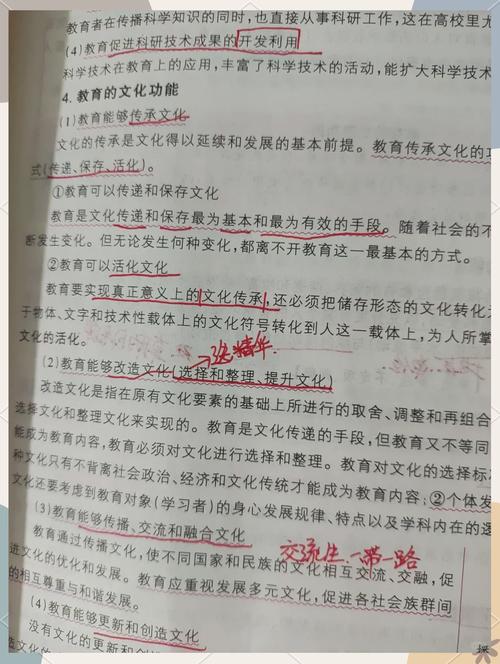 教育者在传播科学知识的同时,也直接从事科研工作,这在高校里大
(4)教育促进科研技术成果的开发利用
科学技术在教育上的应用,丰富了科学技术的活动,能扩大科学技术
4. 教育的文化功能
(1)教育能够传承文化
文化的传承是文化得以延续和发展的基本前提。教育传承文化的功
式(传递、保存、活化)。
①教育可以传递和保存文化
教育是文化传递和保存最为基本和最为有效的手段。随着社会的不
断发生变化。但无论发生何种变化,都离不开教育这一最基本的方式。
②教育可以活化文化
教育要实现真正意义上的文化传承,还必须把储存形态的文化转化
于物体、文字和技术性载体上的文化符号转化到人这一载体上,为人所掌
文化的活化。
选精华
(2)教育能够改造文化(选择和整理、提升文化)
改造文化是指在原有文化要素的基础上所进行的取舍、调整和再组合
选择文化和整理文化来实现的。教育是文化传递的手段,但教育又不等同
能成为教育内容,教育必须对文化进行选择和整理。教育对文化的选择标
种文化只有不背离社会政治、经济和文化传统才能成为教育内容;②个体发
文化还要考虑到教育对象(学习者)的身心发展规律、特点以及学科内在的逻
(3)教育能够传播、交流和融合文化
交流生 一带一路
教育通过传播文化,使不同国家和民族的文化相互交流、交融,促
进文化的优化和发展。教育应重视发展多元文化,促进各社会族群间
的相互尊重与和谐发展。
(4)教育能够更新和创造文化
没有文化的更新和创